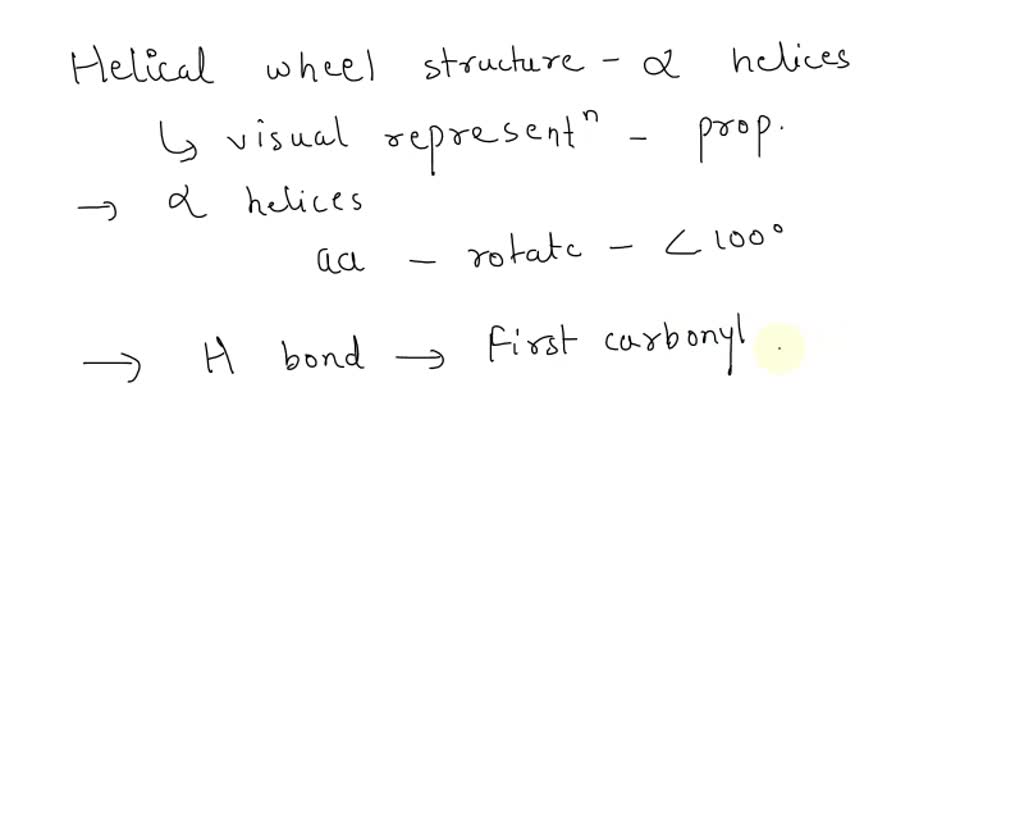 Helical wheel structure - α helices
↳ visual representⁿ - prop.
→ α helices
aa - rotate - ∠100°
→ H bond → First carbonyl